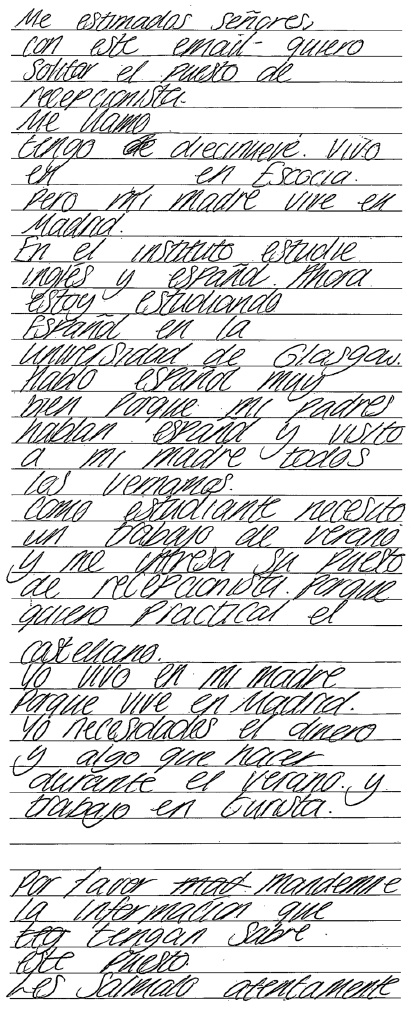 Me estimadas señores,
con este email quiero
Solitar el puesto de
recepcionista.
Me llamo
tengo diecinueve. Vivo
en en Escocia.
Pero mi madre vive en
Madrid.
En el instituto estudie
ingles y españl. Ahora
estoy estudiando
Españl en la
universidad de Glasgow.
Hablo españl muy
bien porque mi padres
hablan españl y visito
a mi madre todos
los veranos.
Como estudiante necesito
un trabajo de verano
y me intresa su puesto
de recepcionista. Porque
quiero practicar el
castellano.
Yo vivo en mi madre
Porque vive en Madrid.
Yo necesidades el dinero
y algo que hacer
durante el verano. y
trabajo en turista.
Por favor mandemne
la informacion que
tengan sobre
este puesto.
Les atentamente